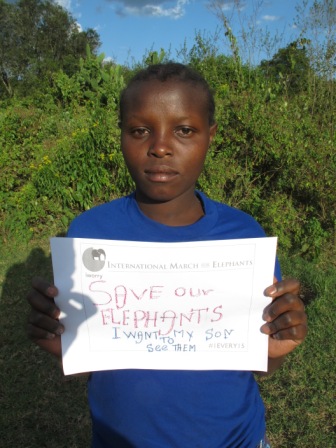 INTERNATIONAL MARCH FOR ELEPHANTS
SAVE OUR
ELEPHANTS
I WANT MY SON
TO
SEE THEM